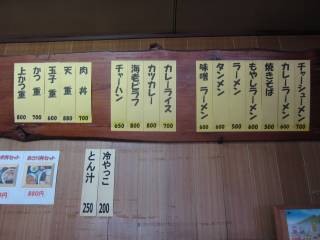 チャーシューメン 700
カレーラーメン 600
焼きそば 500
もやしラーメン 500
ラーメン 500
タンメン 600
味噌ラーメン 600
カレーライス 700
カツカレー 800
海老ピラフ 800
チャーハン 650
肉丼 700
天重 880
玉子重 600
かつ重 700
上かつ重 800
冷やっこ 200
とん汁 250
セット
セット
880円